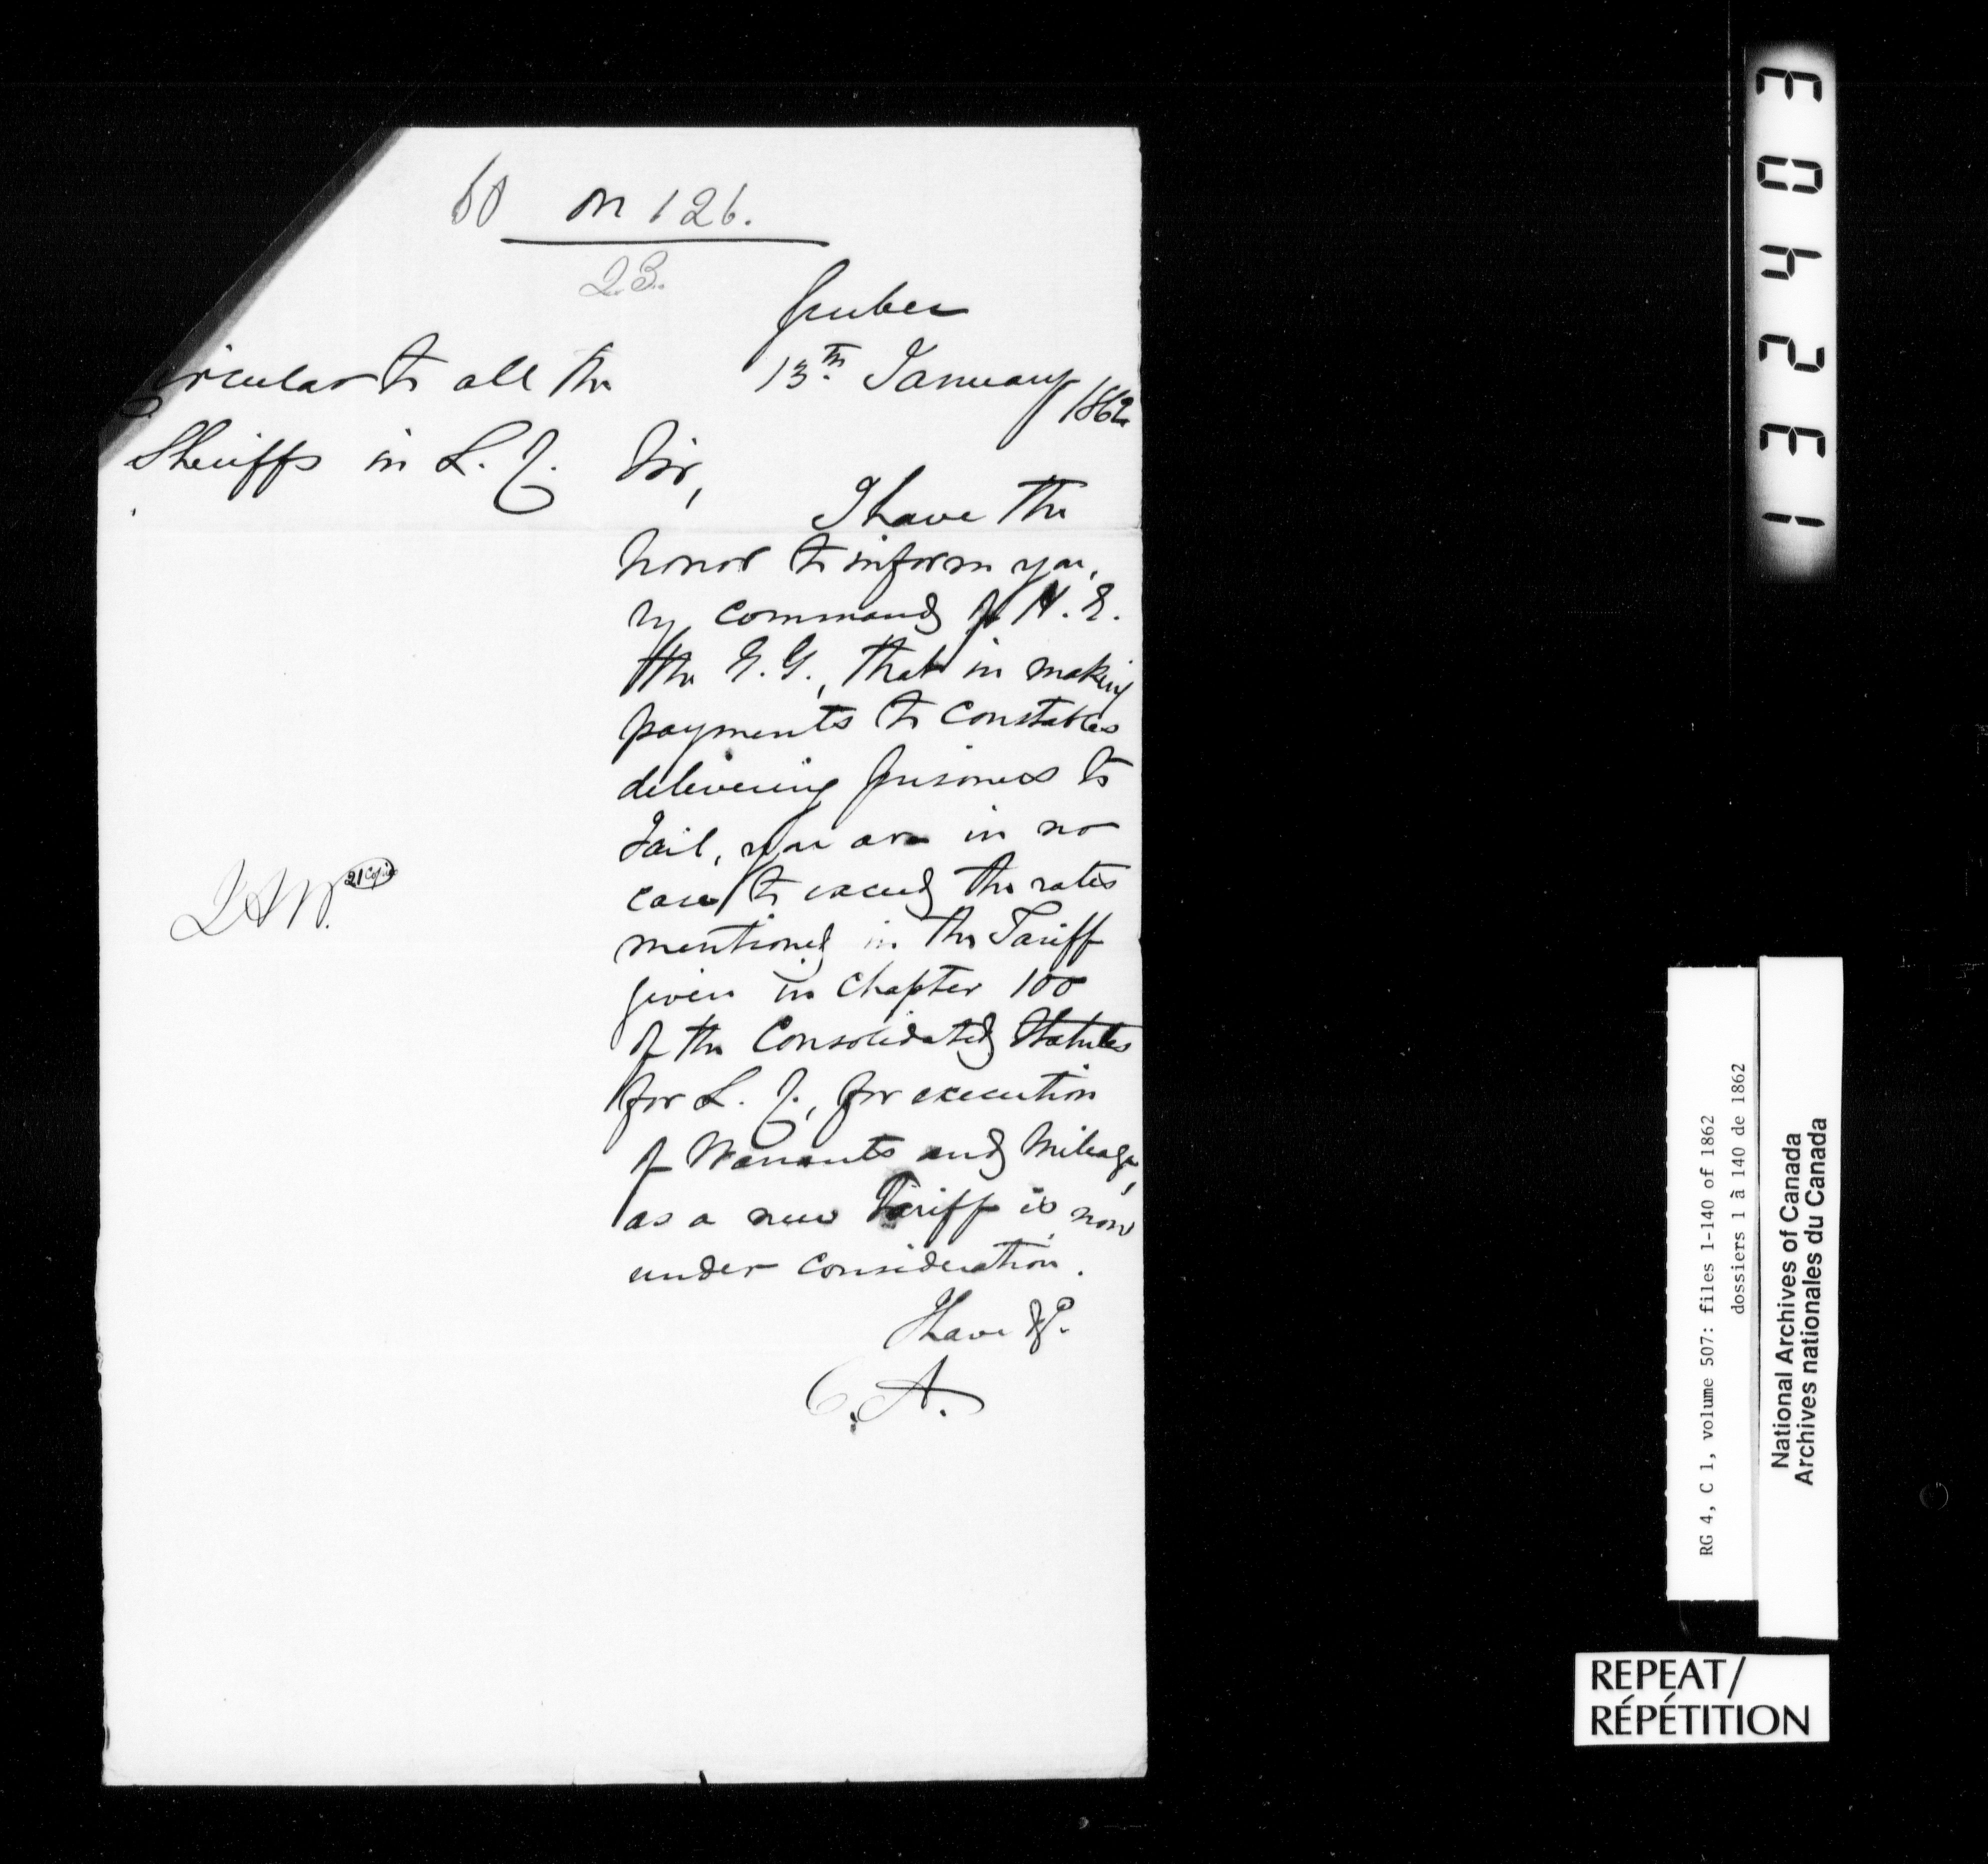 60 on 126.
23.
Quebec
13th January 1862
Circular to all the
Sheriffs in L. C.
Sir,
I have the
honor to inform you,
by command of H. E.
the G. G., that in making
payments to Constables
delivering prisoners to
Jail, you are in no
case to exceed the rates
mentioned in the Tariff
given in Chapter 100
of the Consolidated Statutes
for L. C., for execution
of Warrants and Mileage,
as a new Tariff is now
under consideration.
I have &c.
C. A.
21 Copies
RG 4, C 1, volume 507: files 1-140 of 1862
dossiers 1 à 140 de 1862
National Archives of Canada
Archives nationales du Canada
REPEAT/
RÉPÉTITION